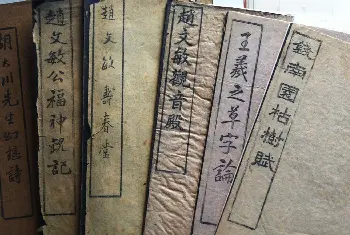 胡大川先生幻想詩
趙文敏公福神觀記
趙文敏 壽春堂
趙文敏觀音殿
王羲之草字論
錢南園枯樹賦